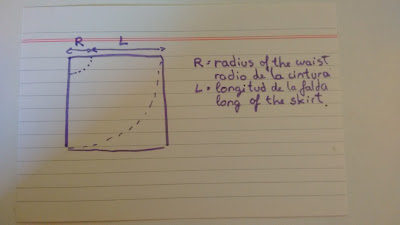 R L
R = radius of the waist
radio de la cintura
L = longitud de la falda
long of the skirt.